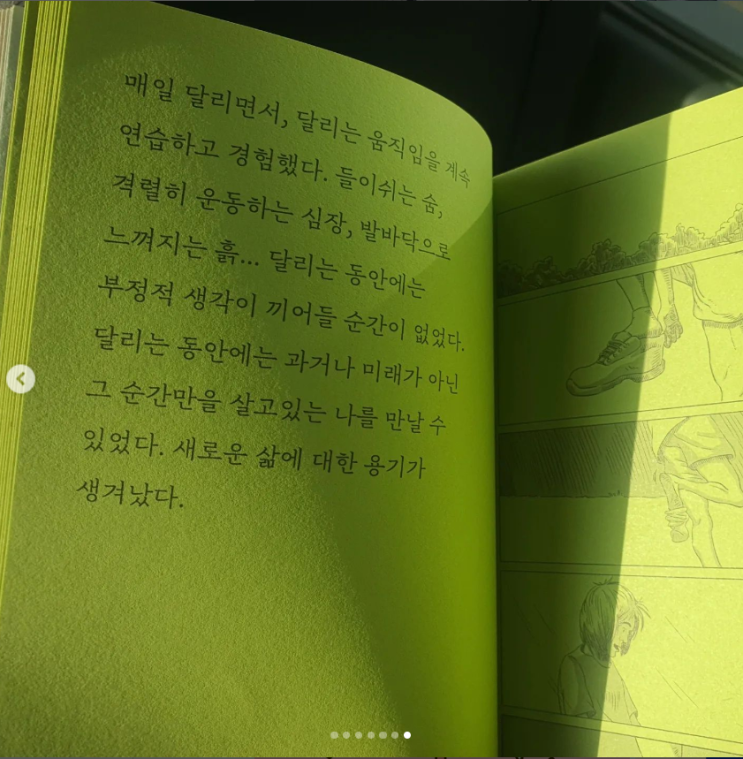 매일 달리면서, 달리는 움직임을 계속
연습하고 경험했다. 들이쉬는 숨,
격렬히 운동하는 심장, 발바닥으로
느껴지는 흙... 달리는 동안에는
부정적 생각이 끼어들 순간이 없었다.
달리는 동안에는 과거나 미래가 아닌
그 순간만을 살고있는 나를 만날 수
있었다. 새로운 삶에 대한 용기가
생겨났다.